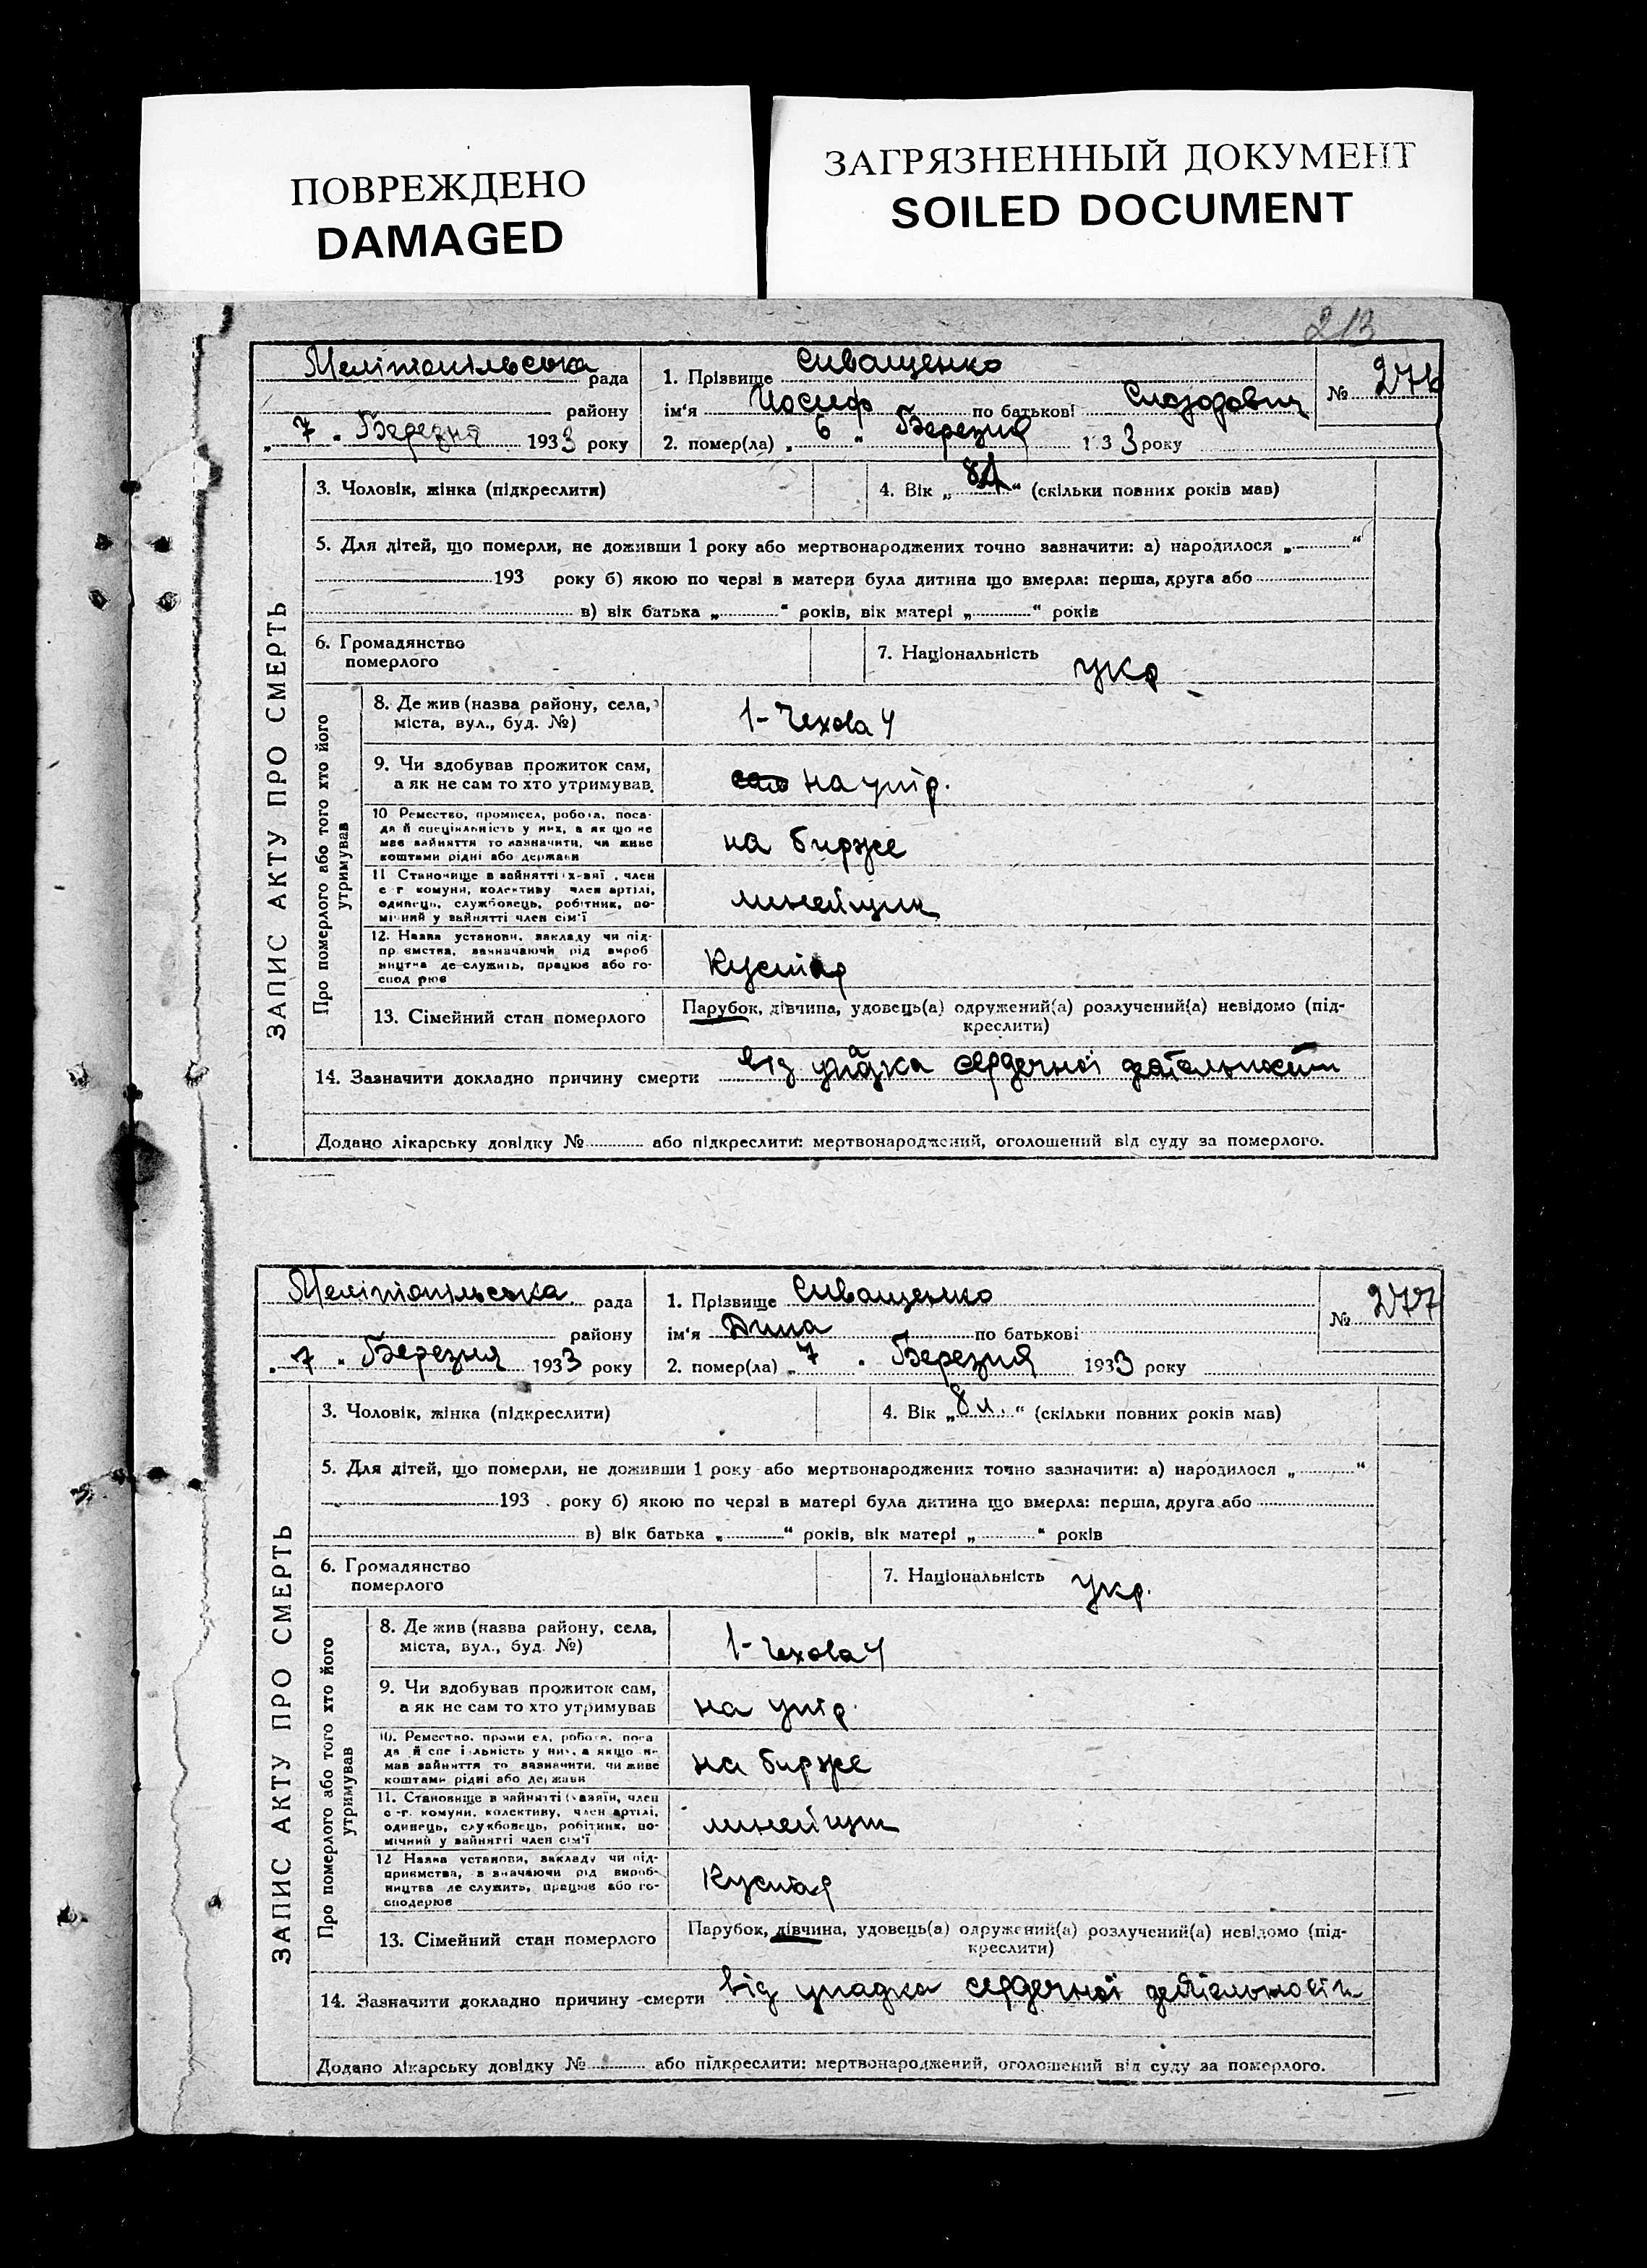 ПОВРЕЖДЕНО
DAMAGED
ЗАГРЯЗНЕННЫЙ ДОКУМЕНТ
SOILED DOCUMENT
213
ЗАПИС АКТУ ПРО СМЕРТЬ
Мелітопільська рада
району
„ 7 „ Березня 1933 року
1. Прізвище Сиващенко
ім'я Иосиф по батькові
№ 276
2. помер(ла) „ 6 „ Березня 1933 року
3. Чоловік, жінка (підкреслити)
4. Вік „ 8 “ (скільки повних років мав)
5. Для дітей, що померли, не доживши 1 року або мертвонароджених точно зазначити: а) народилося „ “
193 року б) якою по черзі в матери була дитина що вмерла: перша, друга або
в) вік батька „ “ років, вік матері „ “ років
6. Громадянство
померлого
7. Національність укр
Про померлого або того хто його
утримував
8. Де жив (назва району, села,
міста, вул., буд. №)
1-Чехова 4
9. Чи здобував прожиток сам,
а як не сам то хто утримував.
сам на утр.
10 Ремество, промисел, робота, поса-
да й специальність у них, а як що не
має зайняття то зазначити, чи живе
коштами рідні або держави
на бирже
11 Становище в зайнятті х-вяї, член
с г комуни, колективу член артілі,
одинець, службовець, робітник, по-
мічний у зайнятті член сім'ї
линейщик
12. Назва установи, закладу чи під-
пр ємства, зазначаючи рід вироб
ництва де служить, працює або го-
спод рює
Кустар
13. Сімейний стан померлого
Парубок, дівчина, удовець(а) одружений(а) розлучений(а) невідомо (під-
креслити)
14. Зазначити докладно причину смерти від упадка сердечної
Додано лікарську довідку № або підкреслити: мертвонароджений, оголошений від суду за померлого.
ЗАПИС АКТУ ПРО СМЕРТЬ
Мелітопільська рада
району
„ 7 „ Березня 1933 року
1. Прізвище Сиващенко
ім'я Дина по батькові
№ 277
2. помер(ла) „ 7 „ Березня 1933 року
3. Чоловік, жінка (підкреслити)
4. Вік „ 8 “ (скільки повних років мав)
5. Для дітей, що померли, не доживши 1 року або мертвонароджених точно зазначити: а) народилося „ “
193 року б) якою по черзі в матері була дитина що вмерла: перша, друга або
в) вік батька „ “ років, вік матері „ “ років
6. Громадянство
померлого
7. Національність укр.
Про померлого або того хто його
утримував
8. Де жив (назва району, села,
міста, вул., буд. №)
1-Чехова 4
9. Чи здобував прожиток сам,
а як не сам то хто утримував
на утр.
10. Ремество, проми ел, робота, поса
да й спе і льність у них, а якщо не
мав зайняття то зазначити, чи живе
коштами рідні або держави
на бирже
11. Становище в зайнятті (хазяїн, член
с-г. комуни, колективу, член артілі,
одинець, службовець, робітник, по-
мічний у зайнятті член сім'ї
линейщик
12 Назва установи, закладу чи під-
приємства, зазначаючи рід вироб-
ництва де служить, працює або го-
сподарює
Кустар
13. Сімейний стан померлого
Парубок, дівчина, удовець(а) одружений(а) розлучений(а) невідомо (під-
креслити)
14. Зазначити докладно причину смерти від упадка сердечної
Додано лікарську довідку № або підкреслити: мертвонароджений, оголошений від суду за померлого.